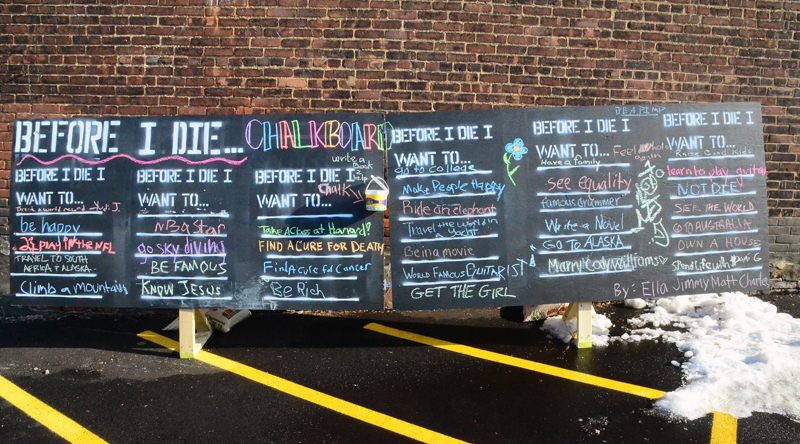 BEFORE I DIE...
CHALKBOARD
BEFORE I DIE I
WANT TO...
be happy
play in the NFL
TRAVEL TO SOUTH
AFRICA + ALASKA
Climb a mountain
BEFORE I DIE I
WANT TO...
NBA Star
go sky diving
BE FAMOUS
KNOW JESUS
write a
Book
Chalk
BEFORE I DIE I
WANT TO...
Take AClass at Harvard?
FIND A CURE FOR DEATH
Find A cure for Cancer
Be Rich
BEFORE I DIE I
WANT TO...
go to college
Make People thappy
Ride an elephant
Travel the world in
a yacht
Being a movie
WORLD FAMOUS GUITARIST
GET THE GIRL
BE A PIMP
BEFORE I DIE I
WANT TO...
Feel
Have a family
see equality
famous drummer
Write a Novel
GO TO ALASKA
Marry Cody williams
BEFORE I DIE I
WANT TO...
Raise Good kids
learn to play guitar
NOT DIE
SEE THE WORLD
GO TO AUSTRALIA
OWN A HOUSE
Spend life with David G
By: Ella Jimmy Matt Charley